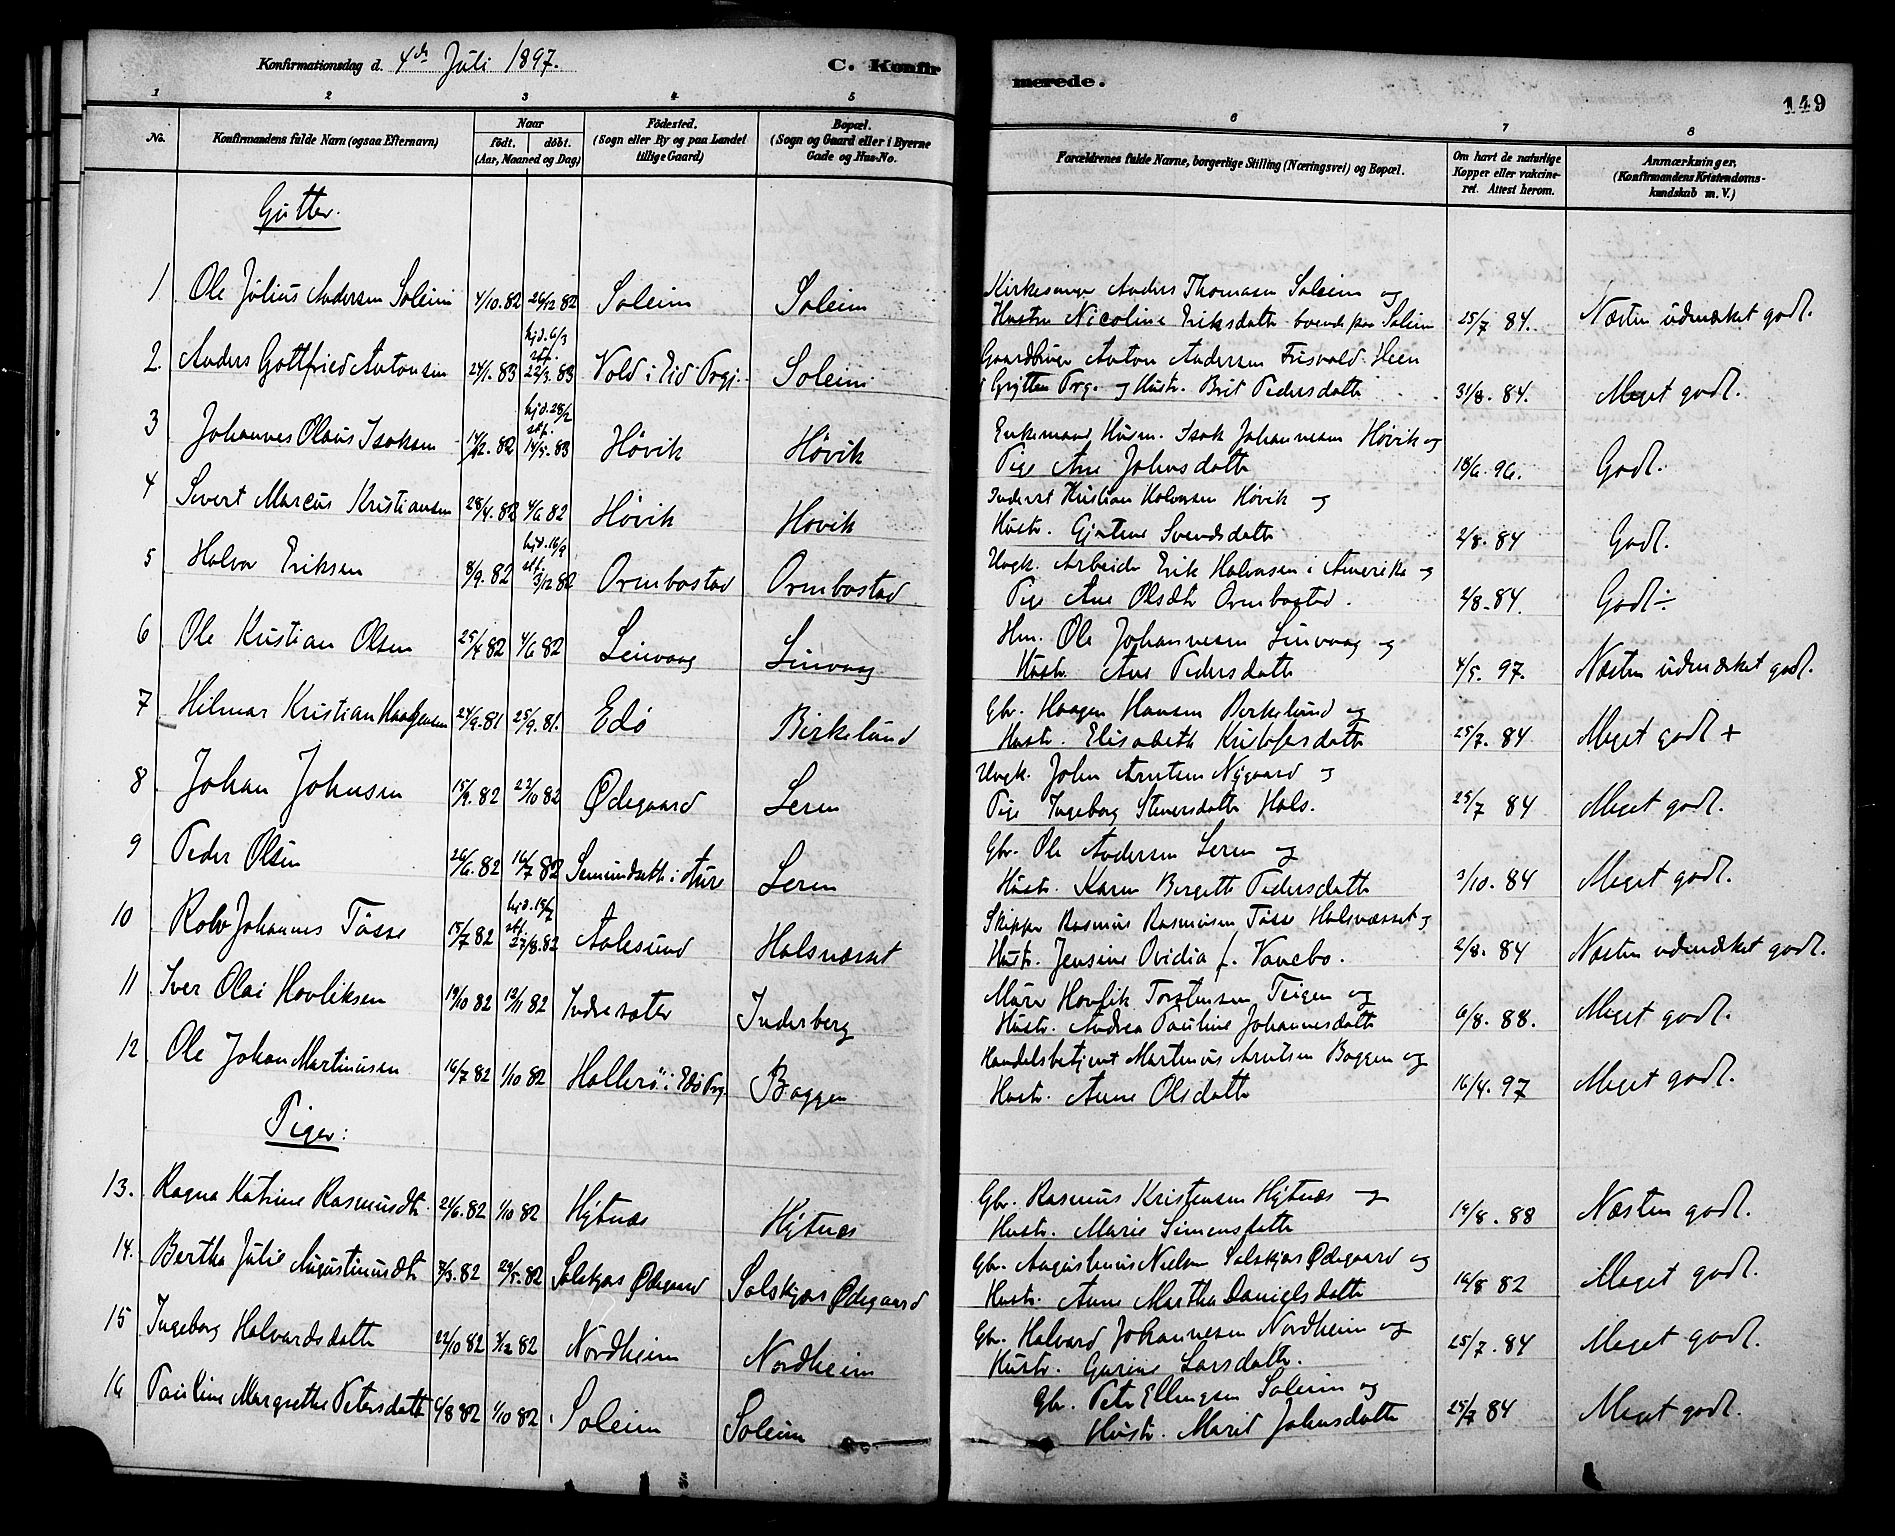 Konfirmationsdag d. 4de Juli 1897.
C. Konfirmerede.
149
1 2 3 4 5 6 7 8
No. Konfirmandens fulde Navn (ogsaa Efternavn) Naar født. døbt. (Aar, Maaned og Dag) Fødested. (Sogn eller By og paa Landet tillige Gaard) Bopæl. (Sogn og Gaard eller i Byerne Gade og Hus-No. Forældrenes fulde Navne, borgerlige Stilling (Næringsvei) og Bopæl. Om havt de naturlige Kopper eller vakcineret. Attest herom. Anmærkninger. (Konfirmandens Kristendomskundskab m. V.)
Gutter.
1 Ole Julius Andersen Soleim 4/10.82 26/12 82 Soleim Soleim Kirkesanger Anders Thomasen Soleim og
Hustru Nicoline Eriksdatter boende paa Soleim 25/7 84. Næsten udmærket godt.
2. Anders Gottfried Antonsen 24/1.83 hjd. 6/3 stf. 22/3.83 Vold i Eid Prgj. Soleim Gaardbruger Anton Andersen Frisvold Heen
i Grytten Prg. og Hustr. Brit Pedersdatter 31/8.84. Meget godt.
3 Johannes Olaus Isaksen 14/12.82 hjd. 28/2 stf. 14/5.83 Høvik Høvik Enkemand Husm. Isak Johannesen Høvik og
Pige Ane Johnsdatter 18/6.96. Godt.
4 Sivert Marcus Kristiansen 28/4.82 4/6 82 Høvik Høvik Inderst Kristian Halvorsen Høvik og
Hustr. Gjertine Svendsdatter 2/8.84 Godt.
5 Halvor Eriksen 8/9.82 hjd. 16/9 stf. 3/12 82 Ormbostad Ormbostad Ungk. Arbeider Erik Halvorsen i Amerika og
Pige Ane Olsdtr Ormbostad. 2/8.84. Godt ÷
6 Ole Kristian Olsen 25/4 82 4/6 82 Leinvaag Linvaag Hm. Ole Johannesen Linvaag og
Hustr. Ane Pedersdatter 4/5. 97. Næsten udmærket godt.
7 Hilmar Kristian Haagensen 24/9.81 25/9.81. Edø Birkelund Gbr. Haagen Hansen Birkelund og
Hustr. Elisabeth Kristofersdatter 25/7.84 Meget godt +
8 Johan Johnsen 15/9.82 22/10 82 Ødegaard Leren Ungk. John Arntsen Nygaard og
Pige Ingeborg Steinersdatter Hals. 25/7 84 Meget godt.
9 Peder Olsen 26/6.82 16/7 82 Semundsæth i Aure Leren Gbr. Ole Andersen Leren og
Hustr. Karen Bergette Pedersdatter 3/10.84 Meget godt.
10 Rolv Johannes Tøsse 15/7 82 hjd. 15/7 stf. 27/8.82 Aalesund Halsnæsset Skipper Rasmus Rasmusen Tøsse Halsnæsset og
Hustr. Jensine Ovidia f. Vanebo. 2/8.84 Næsten udmærket godt.
11 Iver Olai Hovliksen 19/10 82 12/11 82 Indresæter Inderberg Murer Hovlik Torstensen Teigen og
Hustr. Andrea Pauline Johannesdatter 6/8.88. Meget godt.
12 Ole Johan Martinusen 16/7 82 1/10 82 Hallerø i Edø Prg. Boggen Handelsbetjent Martinus Arntsen Boggen og
Hustr. Anne Olsdatter 16/4.97 Meget godt.
Piger:
13. Ragna Katrine Rasmusdtr. 21/6.82 1/10 82 Hjtnæs Hjtnæs Gbr. Rasmus Kristensen Hjtnæs og
Hustr. Marie Simensdatter 19/8.88 Næsten godt.
14. Bertha Julie Augustinusdtr. 8/3.82 29/5.82 Solskjær Ødegaard Solskjær Ødegaard Gbr. Augustinus Nielsen Solskjær Ødegaard og
Hustr. Anne Martha Danielsdatter 16/8 82 Meget godt.
15 Ingeborg Halvardsdatter 22/10 82 3/12 82 Nordheim Nordheim Gbr. Halvard Johannesen Nordheim og
Hustr. Gurine Larsdatter. 25/7.84 Meget godt.
16 Pauline Margrethe Petersdatter 6/8 82 1/10 82 Soleim Soleim Gbr. Peter Ellingsen Soleim og
Hustr. Marit Johnsdatter 25/7 84 Meget godt.